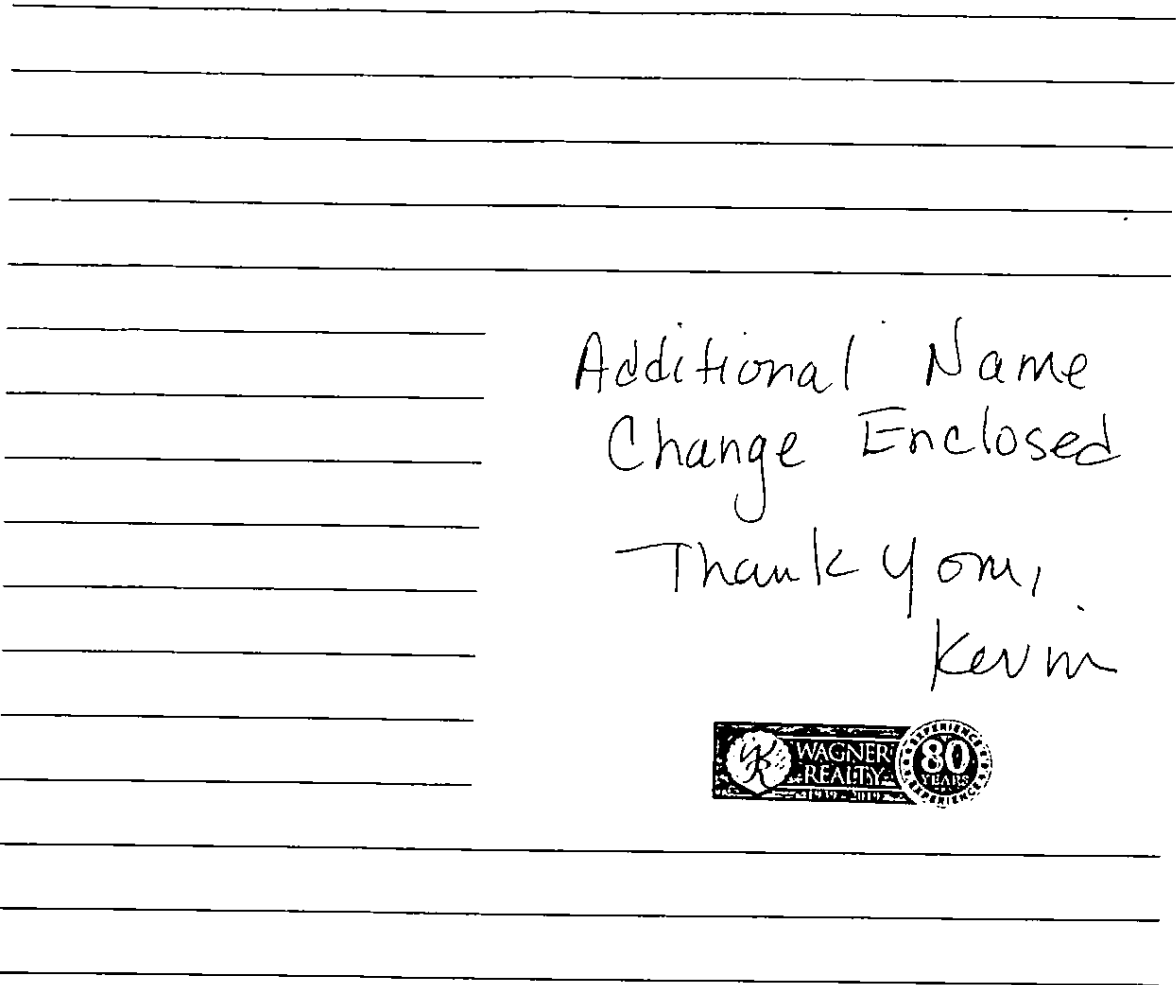 Additional Name
Change Enclosed
Thank you,
Kevin
WAGNER
REALTY
1939 - 2019
EXPERIENCE
80
YEARS
EXPERIENCE